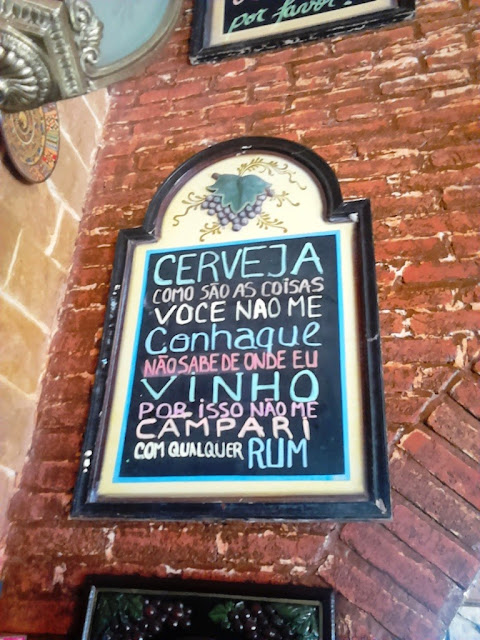 por favor!
CERVEJA
COMO SÃO AS COISAS
VOCE NAO ME
Conhaque
NÃO SABE DE ONDE EU
VINHO
POR ISSO NÃO ME
CAMPARI
COM QUALQUER RUM